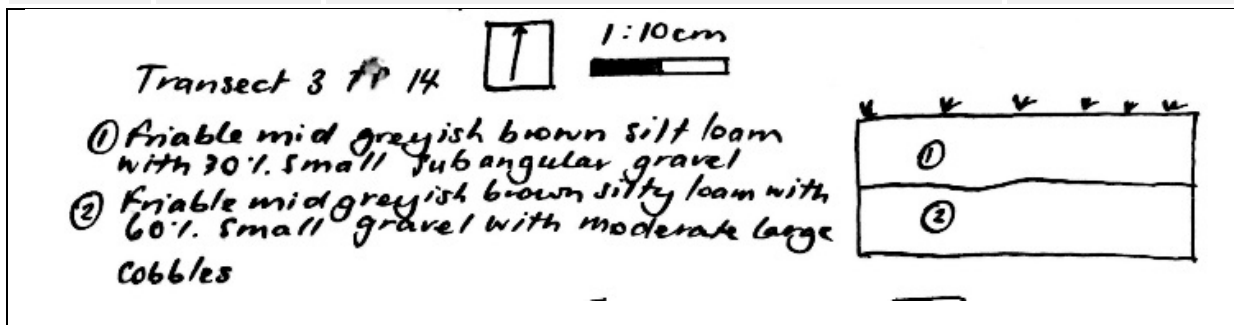 1:10cm
Transect 3 TP 14
① friable mid greyish brown silt loam
with 30%. small subangular gravel
② friable mid greyish brown silty loam with
60%. small gravel with moderate large
cobbles
①
②